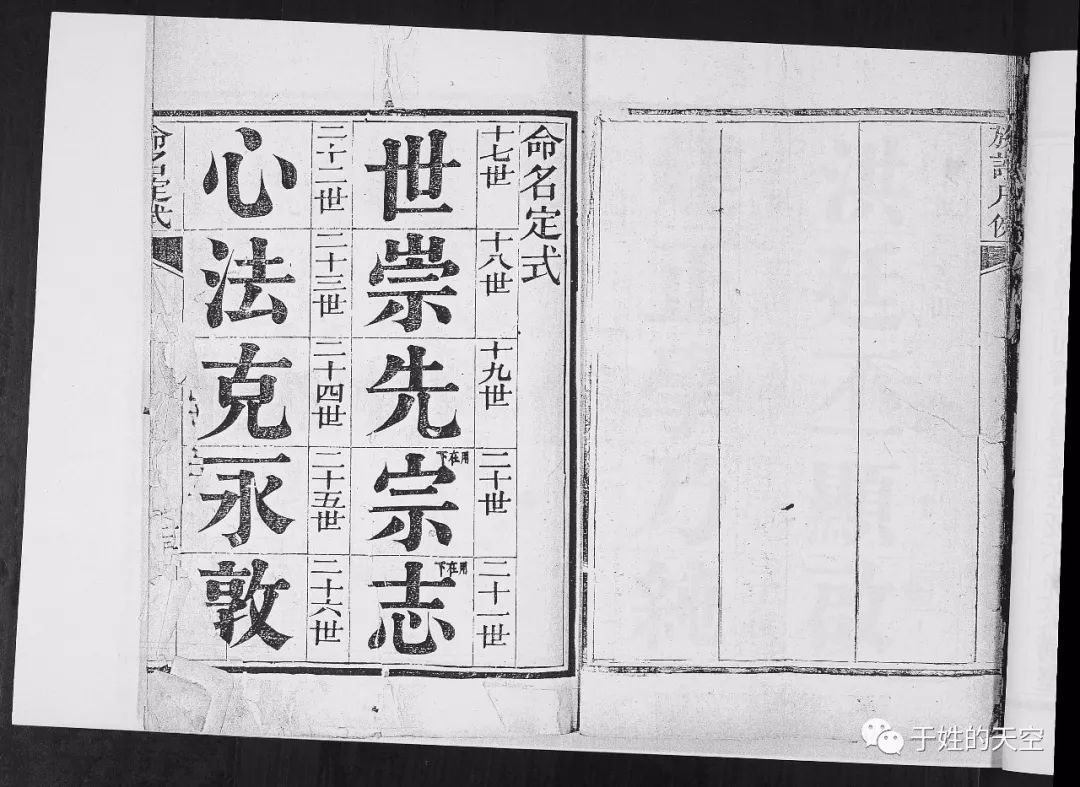 命名定式
十七世
十八世
十九世
二十世
二十一世
世崇先宗志
下在用
下在用
二十二世
二十三世
二十四世
二十五世
二十六世
心法克永敦
命名定式
于姓的天空